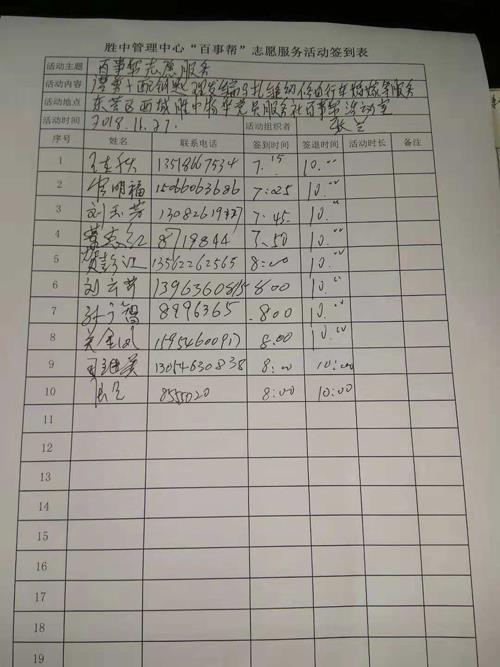 胜中管理中心“百事帮”志愿服务活动签到表
活动主题 百事帮志愿服务
活动内容 磨剪刀 配钥匙 理发 编织 扎 缝纫 修自行车 服务
活动地点 东营区西城胜中 党员服务社百事帮活动室
活动时间 2018.11.27. 活动组织者 张兰
序号 姓名 联系电话 签到时间 签退时间 活动时长 备注
1 13518667534 7.15 10.00
2 明福 15066063686 7:025 10.00
3 刘玉芳 13082619 7.45 10.00
4 8719844 7.50 10.00
5 贺彭江 13562262565 8:00 10.00
6 刘云 13963608 8.00 10.00
7 8996365 8.00 10.00
8 11954600917 8.00 10.00
9 13054630838 8:00 10:00
10 8555020 8:00 10:00
11
12
13
14
15
16
17
18
19